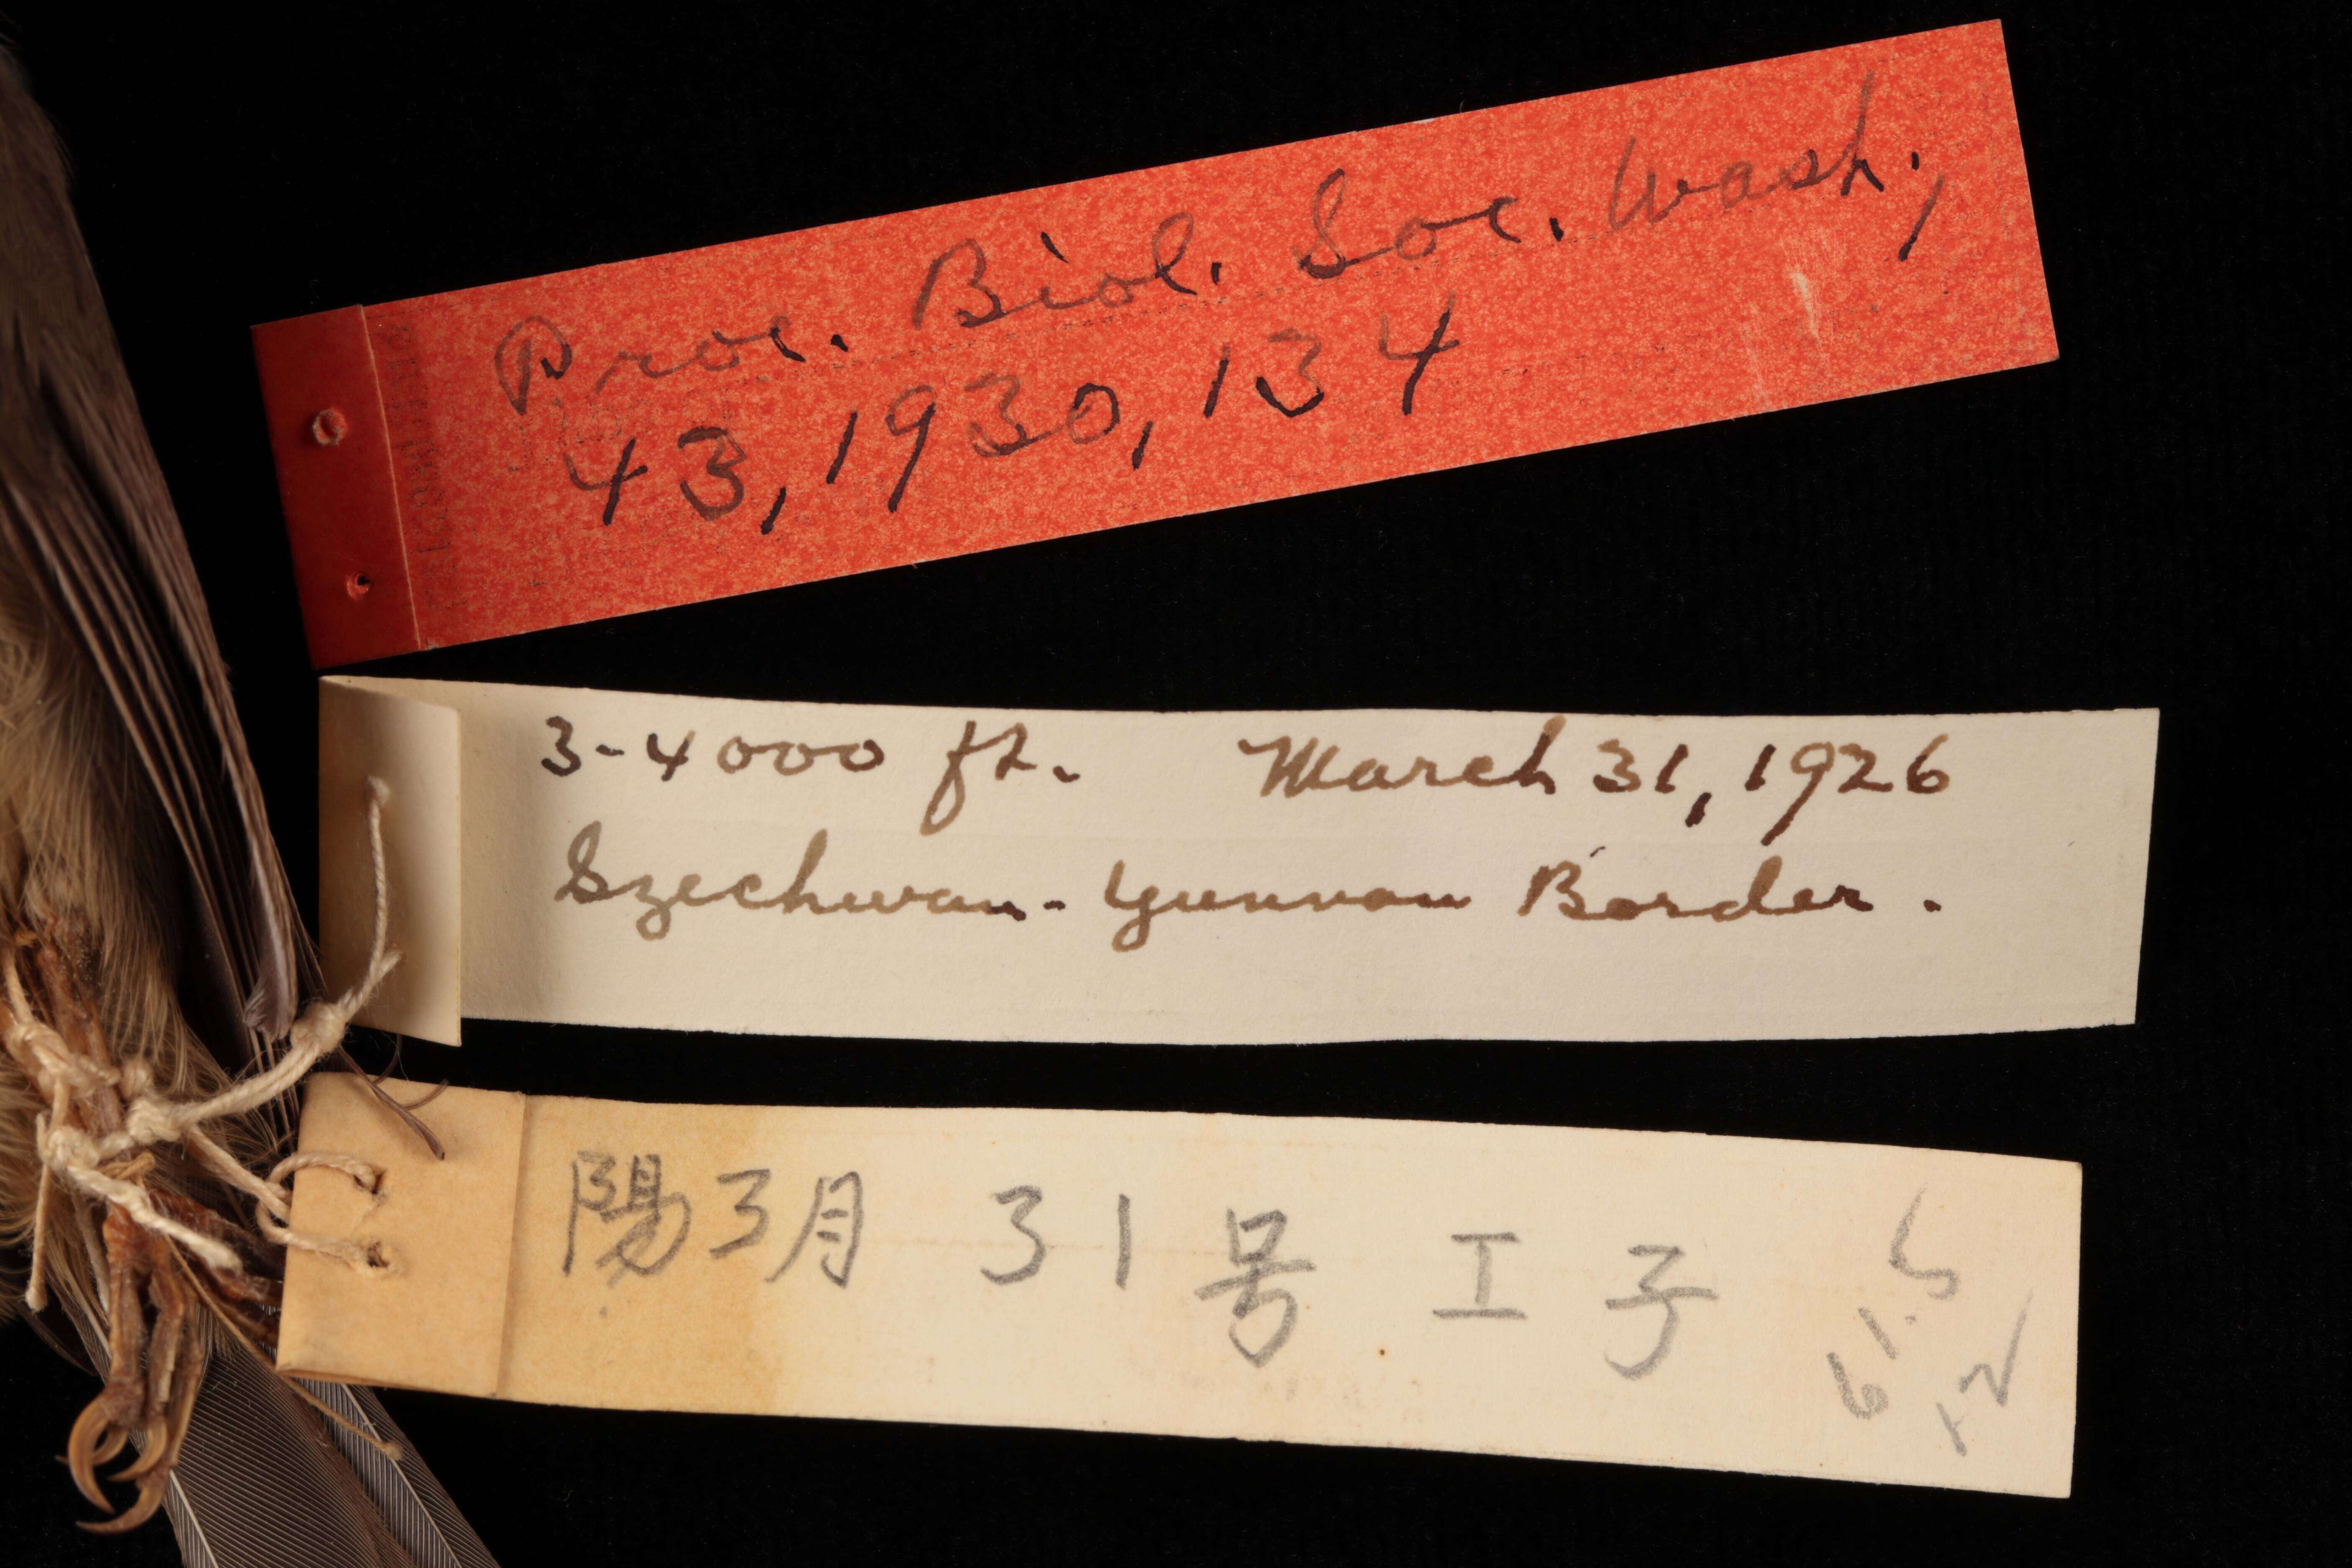 Proc. Biol. Soc. Wash.,
43, 1930, 134
3-4000 ft. March 31, 1926
Szechwan-Yunnan Border.
陽3月 31号 工子
61.5
12